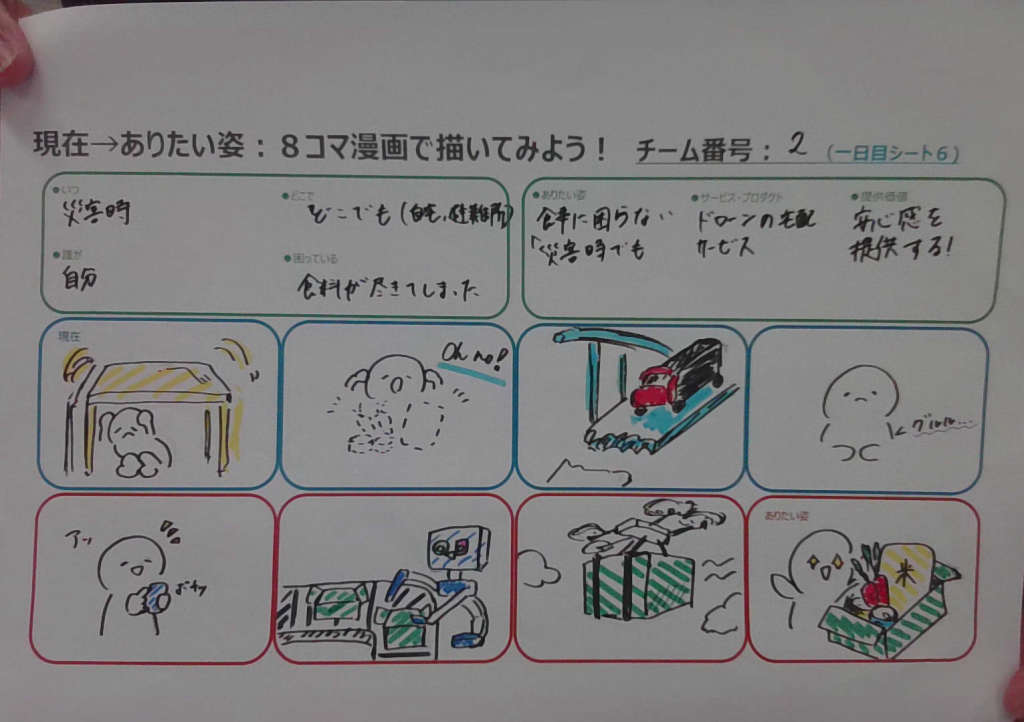 現在→ありたい姿：８コマ漫画で描いてみよう！ チーム番号：2 （一日目シート６）
●いつ
災害時
●どこで
どこでも（自宅、避難所）
●誰が
自分
●困っている
食料が尽きてしまった
●ありたい姿
食事に困らない
「災害時でも
●サービス・プロダクト
ドローンの宅配
サービス
●提供価値
安心感を
提供する！
現在
Oh no!
グゥゥゥ…
アッ
ありたい姿
米